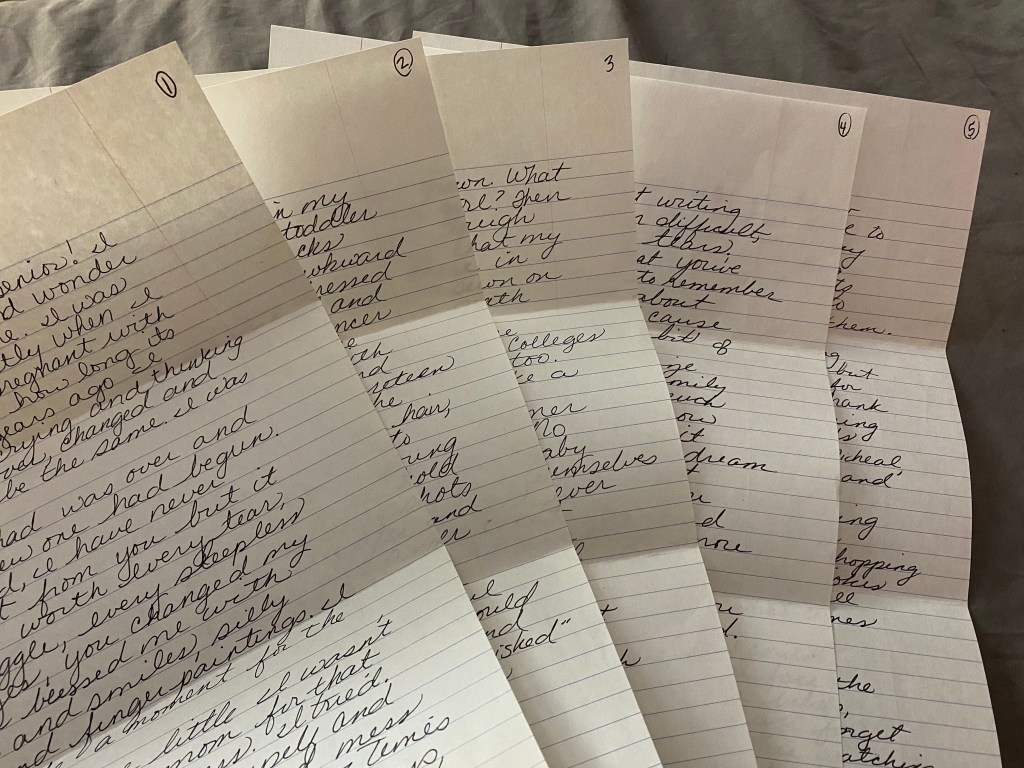 1
enior! I
d wonder
me. I was
tly when I
pregnant with
how long its
years ago I
crying and thinking
changed and
be the same. I was
had was over and
new one had begun.
I have never
t from you but it
worth every tear,
ggle, every sleepless
you changed my
blessed me with
and smiles, silly
d finger paintings. I
a moment for the
little I wasn't
mom for that
I tried.
self and
mess
times
2
in my
toddler
cks
wkward
ressed
and
ncer
oth
nd
roteen
he
hair,
to
rung
old
hots
and
er
3
wn. What
re? Then
rough
hat my
in
wn on
oth
e
Colleges
too.
e a
ner
No
aby
emselves
ever
ould
nd
ished"
4
t writing
n difficult,
tears,
at you've
to remember
about
cause
bit of
ze
mily
uch
ow
it
dream
t
u
d
more
u
d.
5
e to
ny
to
hem.
but
for
hank
ing
s
cheal
and"
ing
hopping
ories
ll
nes
the
rget
atching